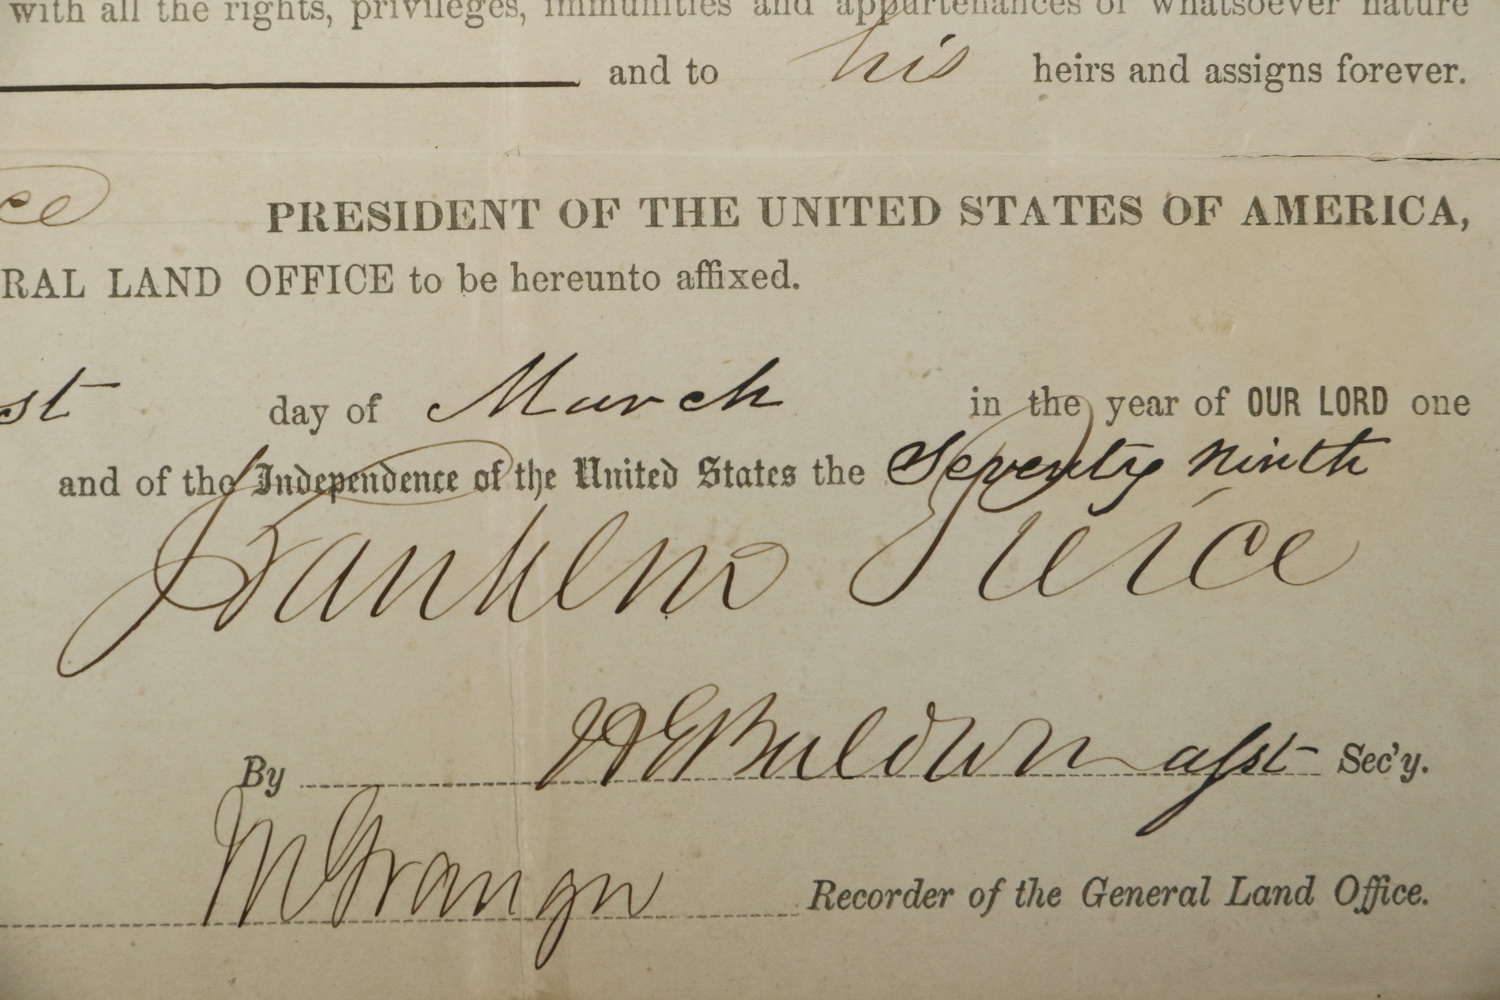 with all the rights, privileges, immunities and appurtenances of whatsoever nature
and to his heirs and assigns forever.
ce PRESIDENT OF THE UNITED STATES OF AMERICA,
RAL LAND OFFICE to be hereunto affixed.
st day of March in the year of OUR LORD one
and of the Independence of the United States the Seventy ninth
Franklin Pierce
By H E Baldwin asst Sec'y.
M Granger Recorder of the General Land Office.